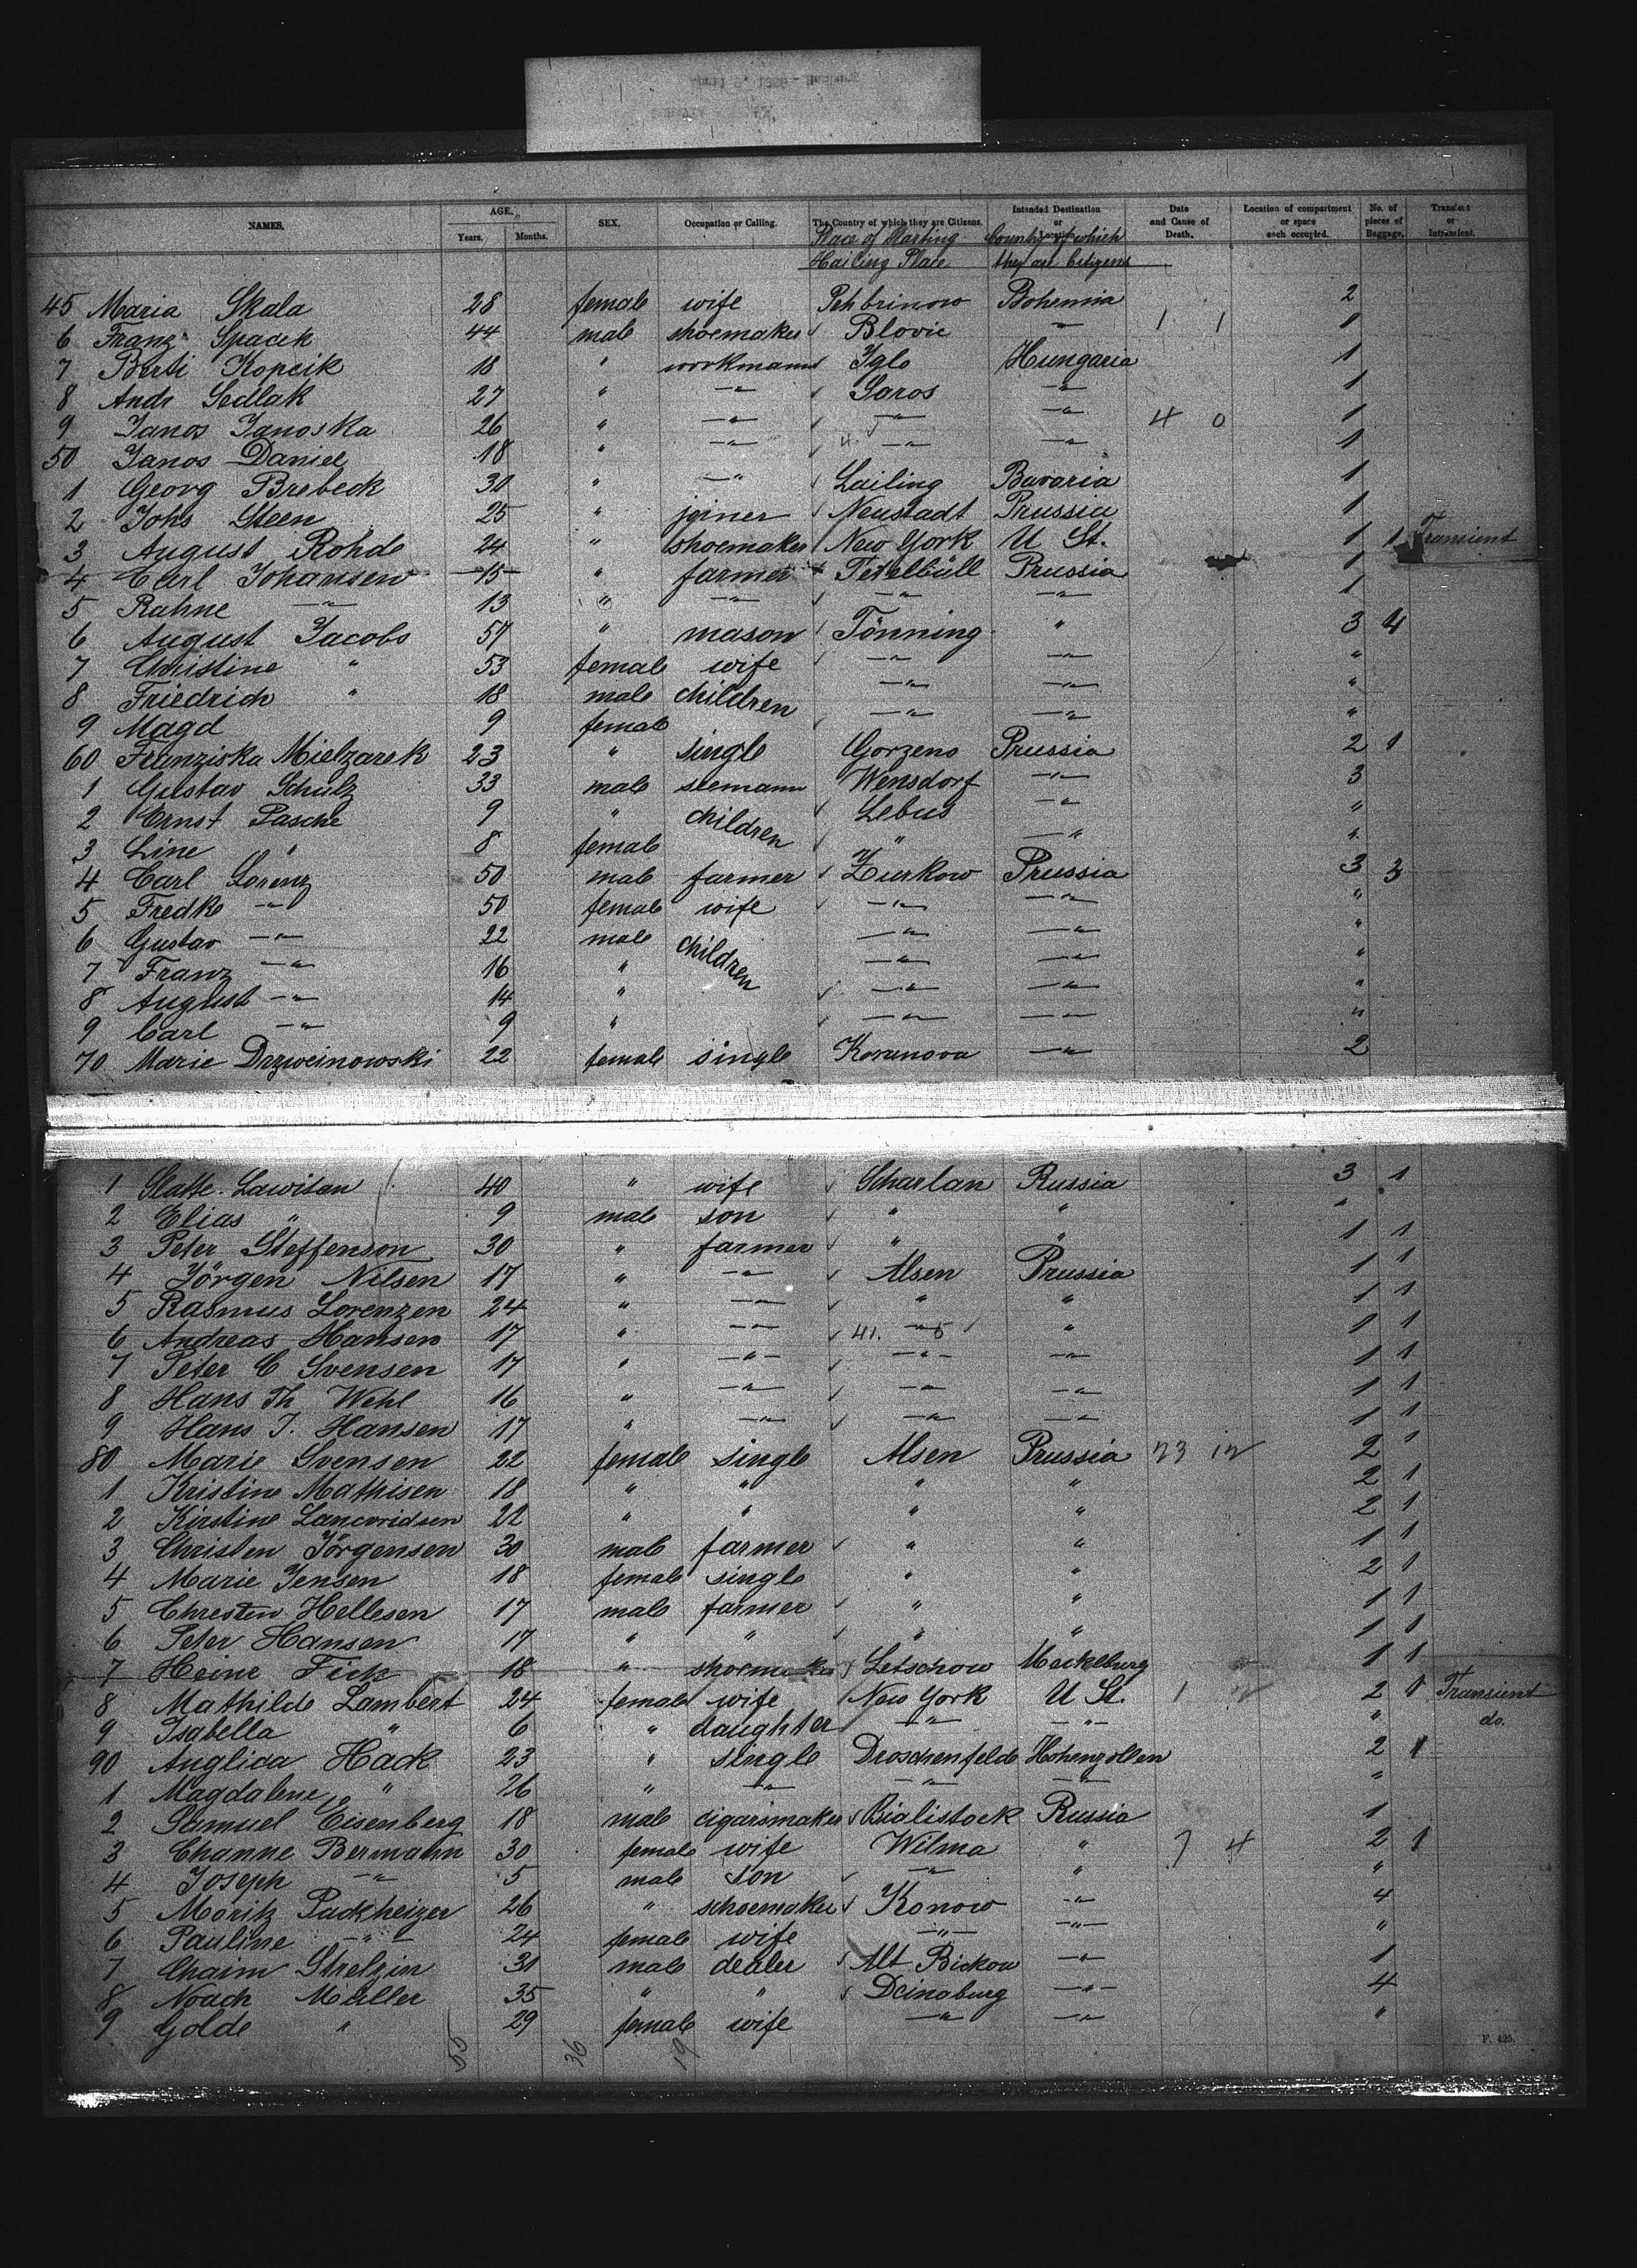 NAMES. AGE. Years. Months. SEX. Occupation or Calling. The Country of which they are Citizens. Intended Destination or Location. Date and Cause of Death. Location of compartment or space each occupied. No. of pieces of Baggage. Transient or Intransient.
Place of Starting Country of which
Hailing Place they are Citizens
45 Maria Skala 28 female wife Pehbrinow Bohemia 2
6 Franz Spacek 44 male shoemaker Blovic -"- 1 1 1
7 Berti Kopcik 18 " workmann Iglo Hungaria 1
8 Andr Sedlak 27 " -"- Saros -"- 1
9 Janos Janoska 26 " -"- -"- -"- 4 0 1
50 Janos Daniel 18 " -"- -"- -"- 1
1 Georg Brebeck 30 " -"- Lailing Bavaria 1
2 Johs Steen 25 " joiner Neustadt Prussia 1
3 August Rohde 24 " shoemaker New York U St. 1 1 Transient
4 Carl Johansen 15 " farmer Tetelbüll Prussia 1
5 Rahne -"- 13 " -"- -"- -"- 1
6 August Jacobs 57 " mason Tönning " 3 4
7 Christine " 53 female wife -"- -"- "
8 Friedrich " 18 male children -"- -"- "
9 Magd 9 female -"- -"- "
60 Franziska Mielzarek 23 " single Gorzeno Prussia 2 1
1 Gustav Schulz 33 male seemann Wensdorf -"- 3
2 Ernst Pasche 9 " children Lebus -"- "
3 Line " 8 female " -"- "
4 Carl Lorenz 50 male farmer Zurkow Prussia 3 3
5 Fredke -"- 50 female wife -"- -"- "
6 Gustav -"- 22 male children -"- -"- "
7 Franz -"- 16 " -"- -"- "
8 August -"- 14 " -"- -"- "
9 Carl -"- 9 " -"- -"- "
70 Marie Drzweinowski 22 female single Koranova -"- 2
1 Slatte Lawitan 40 " wife Scharlan Russia 3 1
2 Elias " 9 male son " " "
3 Peter Steffenson 30 " farmer " " 1 1
4 Jörgen Nilsen 17 " -"- Alsen Prussia 1 1
5 Rasmus Lorenzen 24 " -"- " " 1 1
6 Andreas Hansen 17 " -"- 41. -"- " 1 1
7 Peter C Svensen 17 " -"- -"- -"- 1 1
8 Hans Th Wehl 16 " -"- -"- -"- 1 1
9 Hans J. Hansen 17 " -"- -"- -"- 1 1
80 Marie Svensen 22 female single Alsen Prussia 23 12 2 1
1 Kristine Mathisen 18 " " " " 2 1
2 Kirstine Lancoridsen 22 " " " " 2 1
3 Christen Jörgensen 30 male farmer " " 1 1
4 Marie Jensen 18 female single " " 2 1
5 Chresten Hellesen 17 male farmer " " 1 1
6 Peter Hansen 17 " " " " 1 1
7 Heinr Fick 18 " shoemaker Letschow Mecklburg 1 1
8 Mathilde Lambert 24 female wife New York U St. 1 12 2 1 Transient
9 Isabella " 6 " daughter -"- -"- " do.
90 Anglica Hack 23 " single Droschenfelde Hohenzollen 2 1
1 Magdalene " 26 " -"- -"- -"- "
2 Samuel Eisenberg 18 male cigarsmaker Bialistock Russia 1
3 Channe Bermann 30 female wife Wilma " 7 4 2 1
4 Joseph -"- 5 male son -"- " "
5 Moritz Packheizer 26 " schoemaker Konow -"- 4
6 Pauline -"- 24 female wife -"- -"- "
7 Chaim Strelzin 30 male dealer Alt Bickow -"- 1
8 Noach Müller 35 " " Deinaburg -"- 4
9 Golde " 29 female wife -"- -"- "
55 36 19
F. 425.